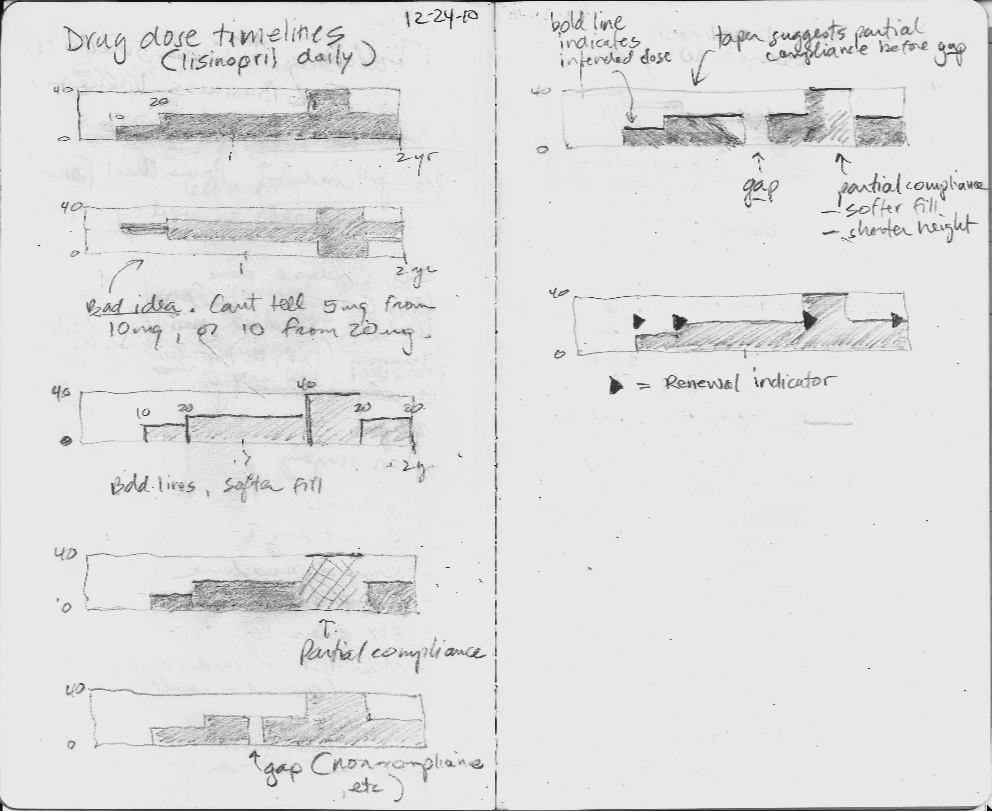 12-24-10
Drug dose timelines
(lisinopril daily)
40
20
10
0
1
2 yr
40
0
1
2 yr
Bad idea. Can't tell 5mg from
10mg, or 10 from 20mg.
40
40
10
20
20
20
2y
Bold lines, softer fill
40
0
Partial compliance
40
0
gap (noncompliance
etc)
bold line
indicates
intended dose
taper suggests partial
compliance before gap
40
0
gap
partial compliance
– softer fill
– shorter height
40
0
= Renewal indicator